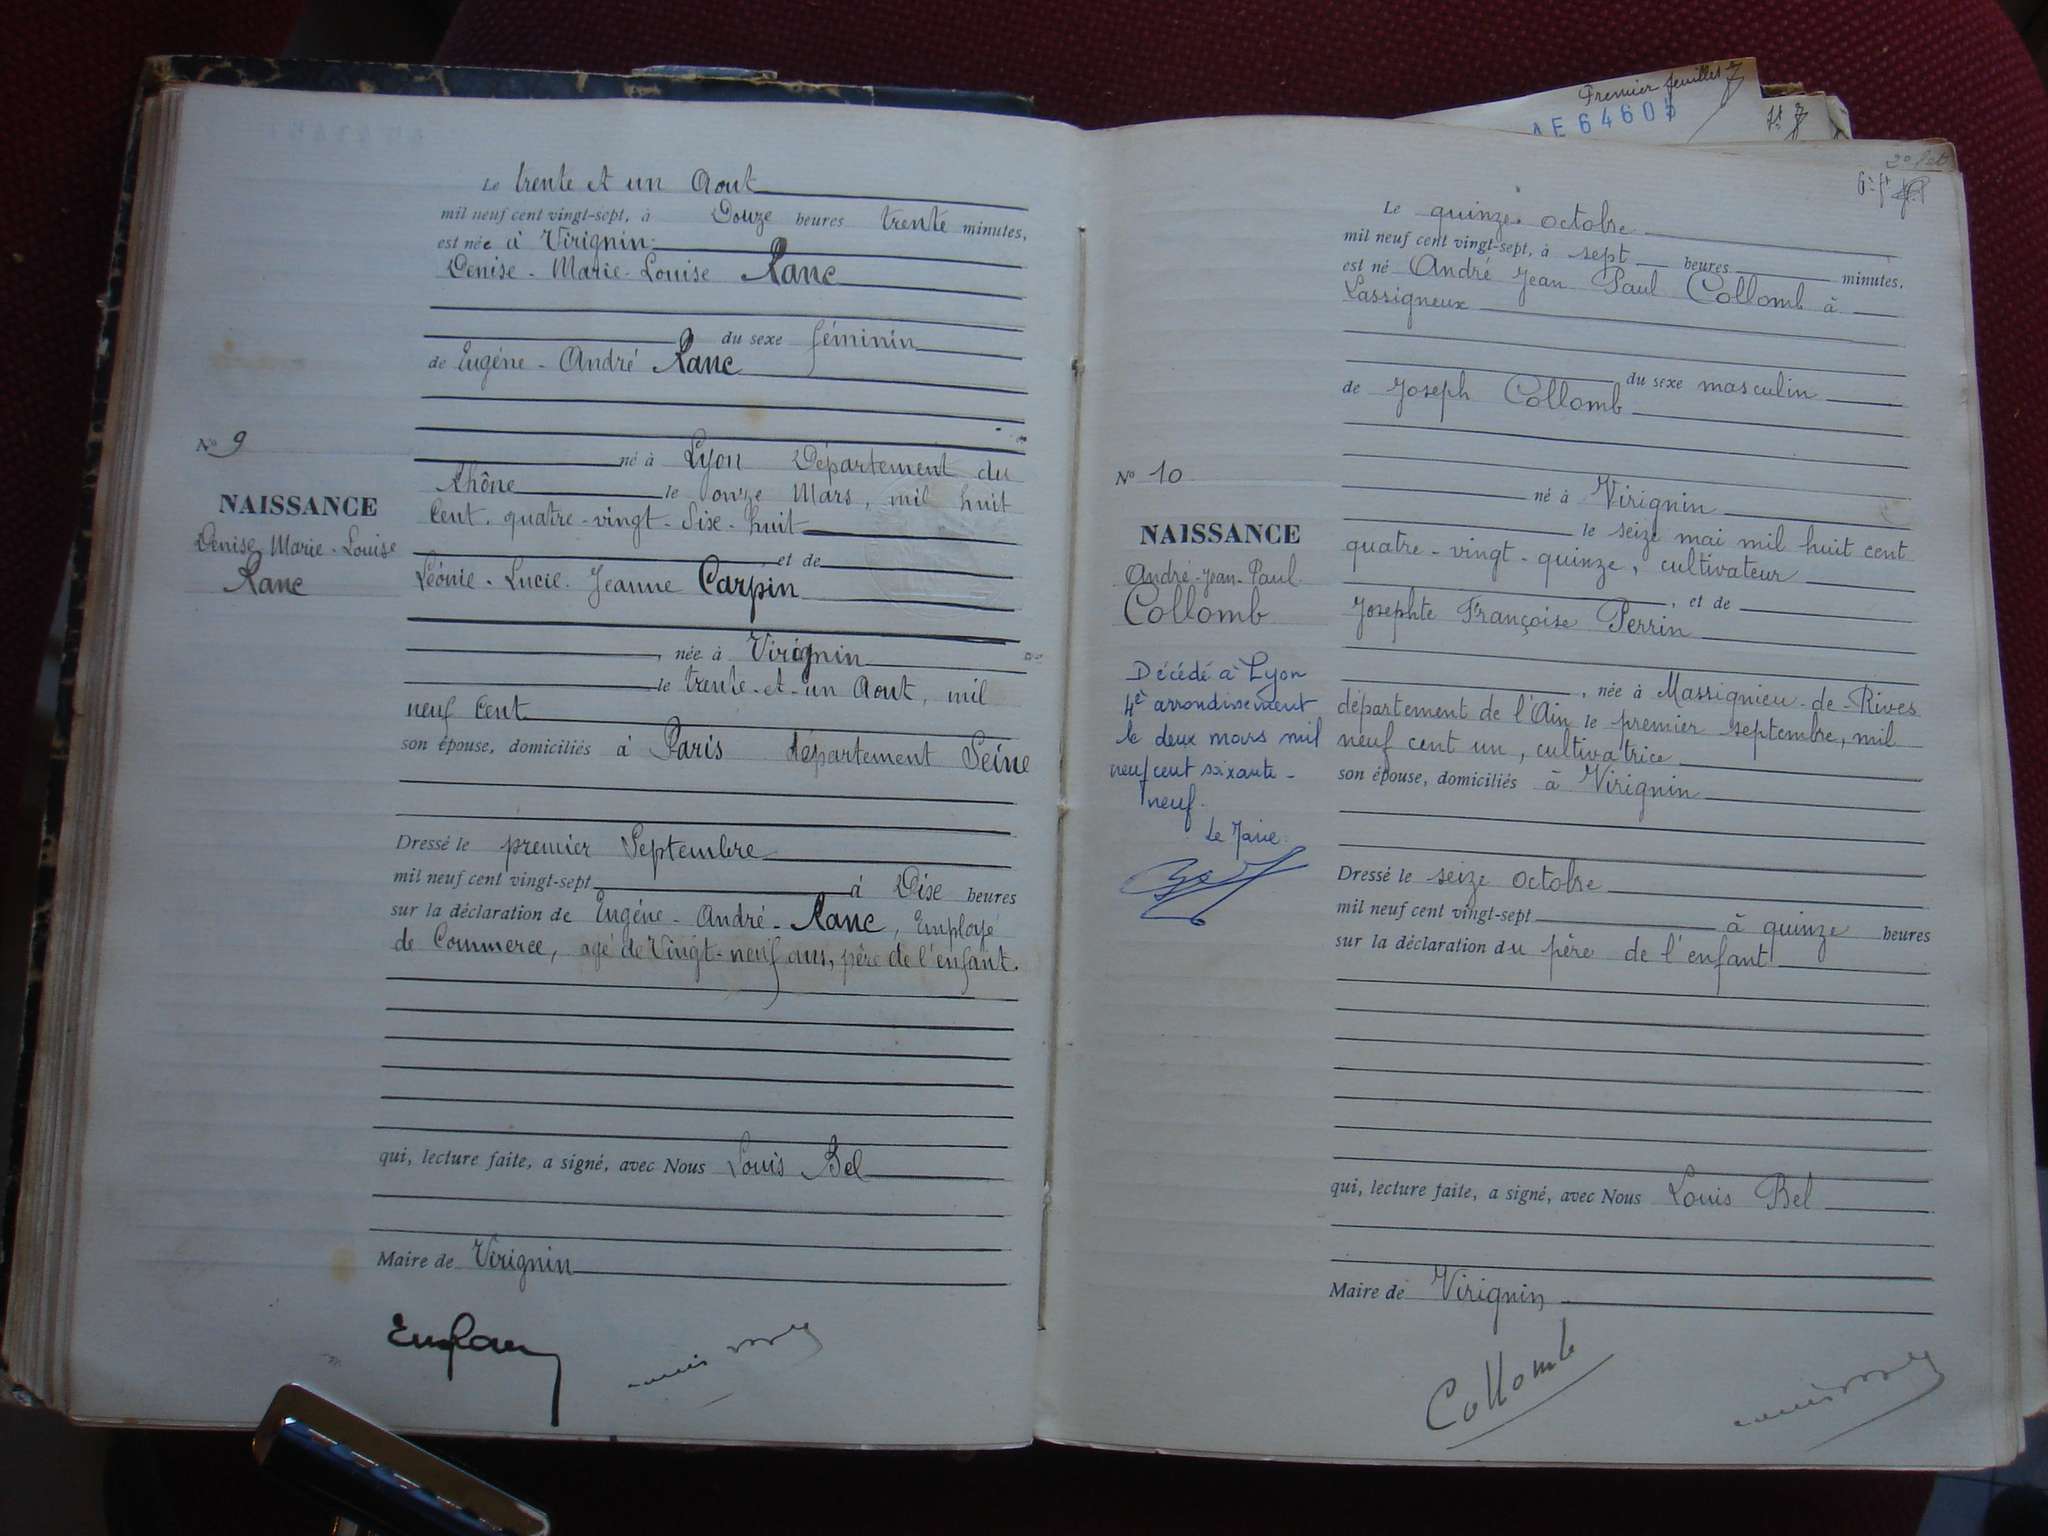 Premier feuillet
AE 6460
Le trente et un Aout
mil neuf cent vingt-sept, à Douze heures trente minutes,
est née à Virignin
Denise - Marie - Louise Ranc
du sexe féminin
de Eugéne - André Ranc
né à Lyon Département du
Rhône le onze Mars, mil huit
Cent. quatre - vingt - Dix - huit
et de
Léonie - Lucie. Jeanne Carpin
, née à Virignin
le trente - et - un Aout, mil
neuf Cent
son épouse, domiciliés à Paris département Seine
Dressé le premier Septembre
mil neuf cent vingt-sept à Dix heures
sur la déclaration de Eugéne - André - Ranc, Employé
de Commerce, agé de Vingt - neuf ans, père de l'enfant.
qui, lecture faite, a signé, avec Nous Louis Bel
Maire de Virignin
No 9
NAISSANCE
Denise - Marie - Louise
Ranc
Le quinze octobre
mil neuf cent vingt-sept, à sept heures minutes,
est né André Jean Paul Collomb à
Lassigneux
du sexe masculin
de Joseph Collomb
né à Virignin
le seize mai mil huit cent
quatre - vingt - quinze, cultivateur
, et de
Josephte Françoise Perrin
, née à Massignieu - de - Rives
département de l'Ain le premier septembre, mil
neuf cent un, cultivatrice
son épouse, domiciliés à Virignin
Dressé le seize octobre
mil neuf cent vingt-sept à quinze heures
sur la déclaration du père de l'enfant
qui, lecture faite, a signé, avec Nous Louis Bel
Maire de Virignin
Collomb
No 10
NAISSANCE
André - Jean - Paul
Collomb
Décédé à Lyon
4è arrondissement
le deux mars mil
neuf cent soixante -
neuf.
Le Maire